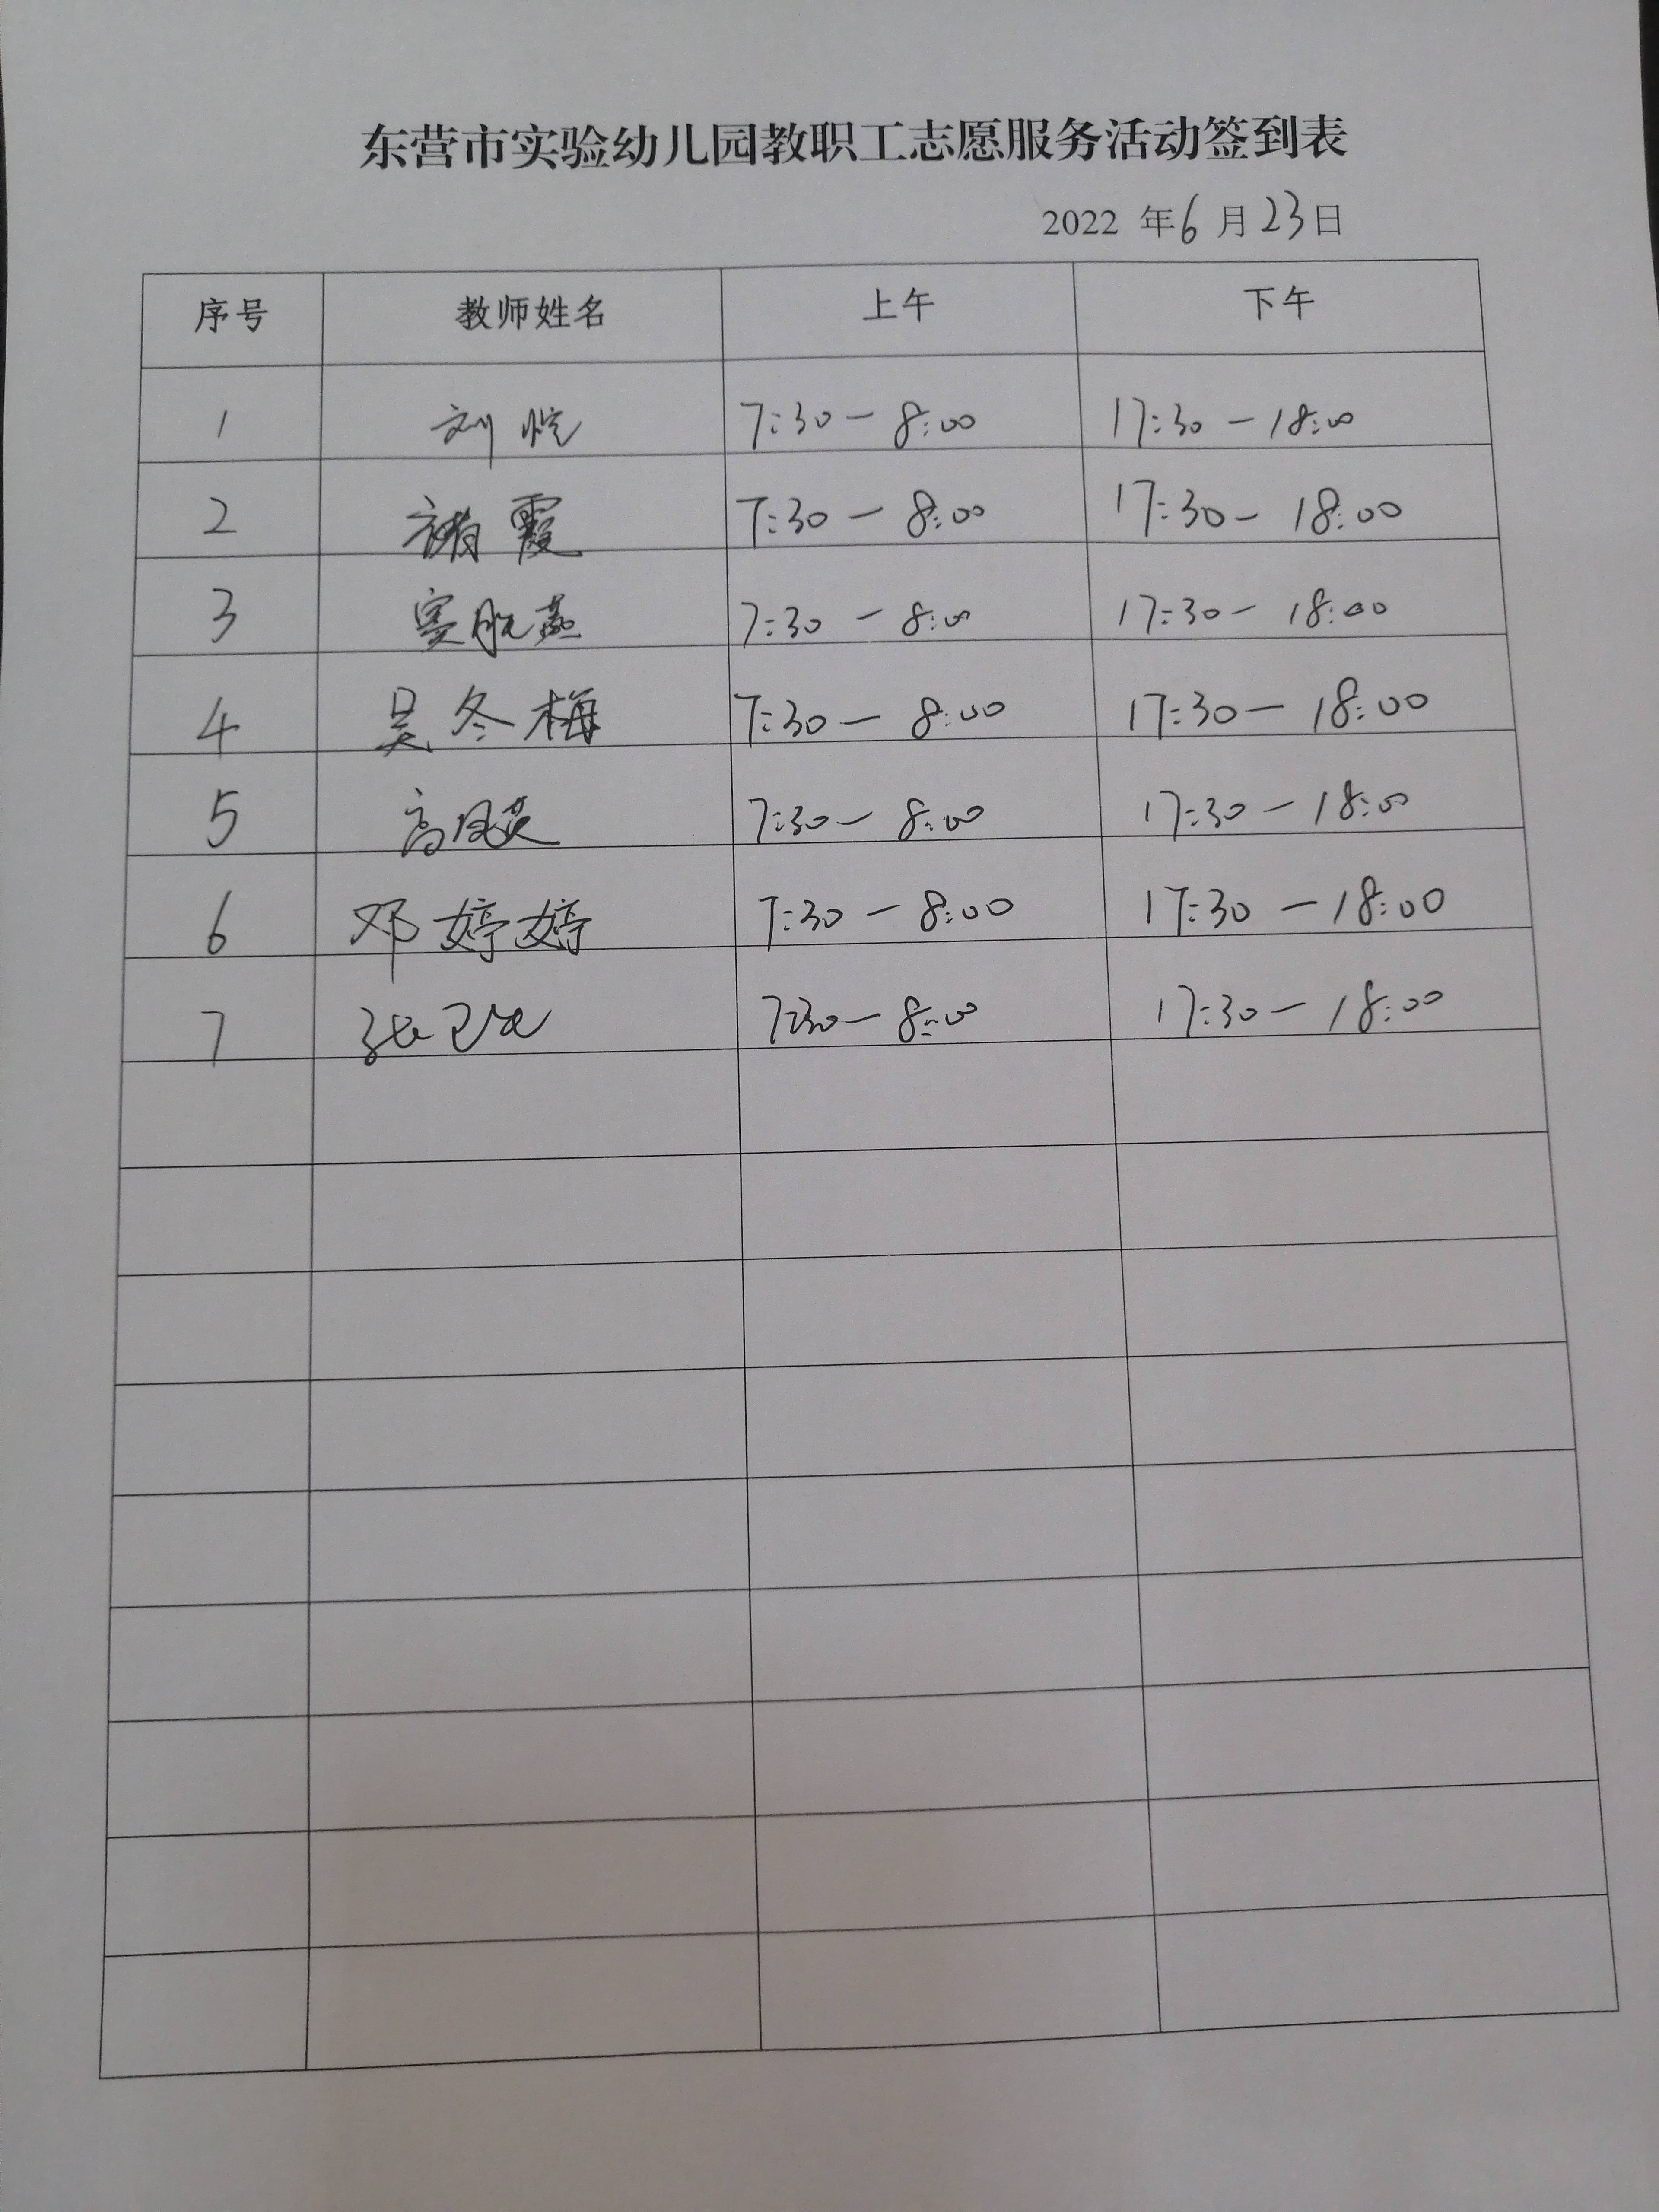 东营市实验幼儿园教职工志愿服务活动签到表
2022 年6月23日
序号 教师姓名 上午 下午
1 刘 7:30—8:00 17:30—18:00
2 褚霞 7:30—8:00 17:30—18:00
3 7:30—8:00 17:30—18:00
4 吴冬梅 7:30—8:00 17:30—18:00
5 高凤英 7:30—8:00 17:30—18:00
6 邓婷婷 7:30—8:00 17:30—18:00
7 张 7:30—8:00 17:30—18:00